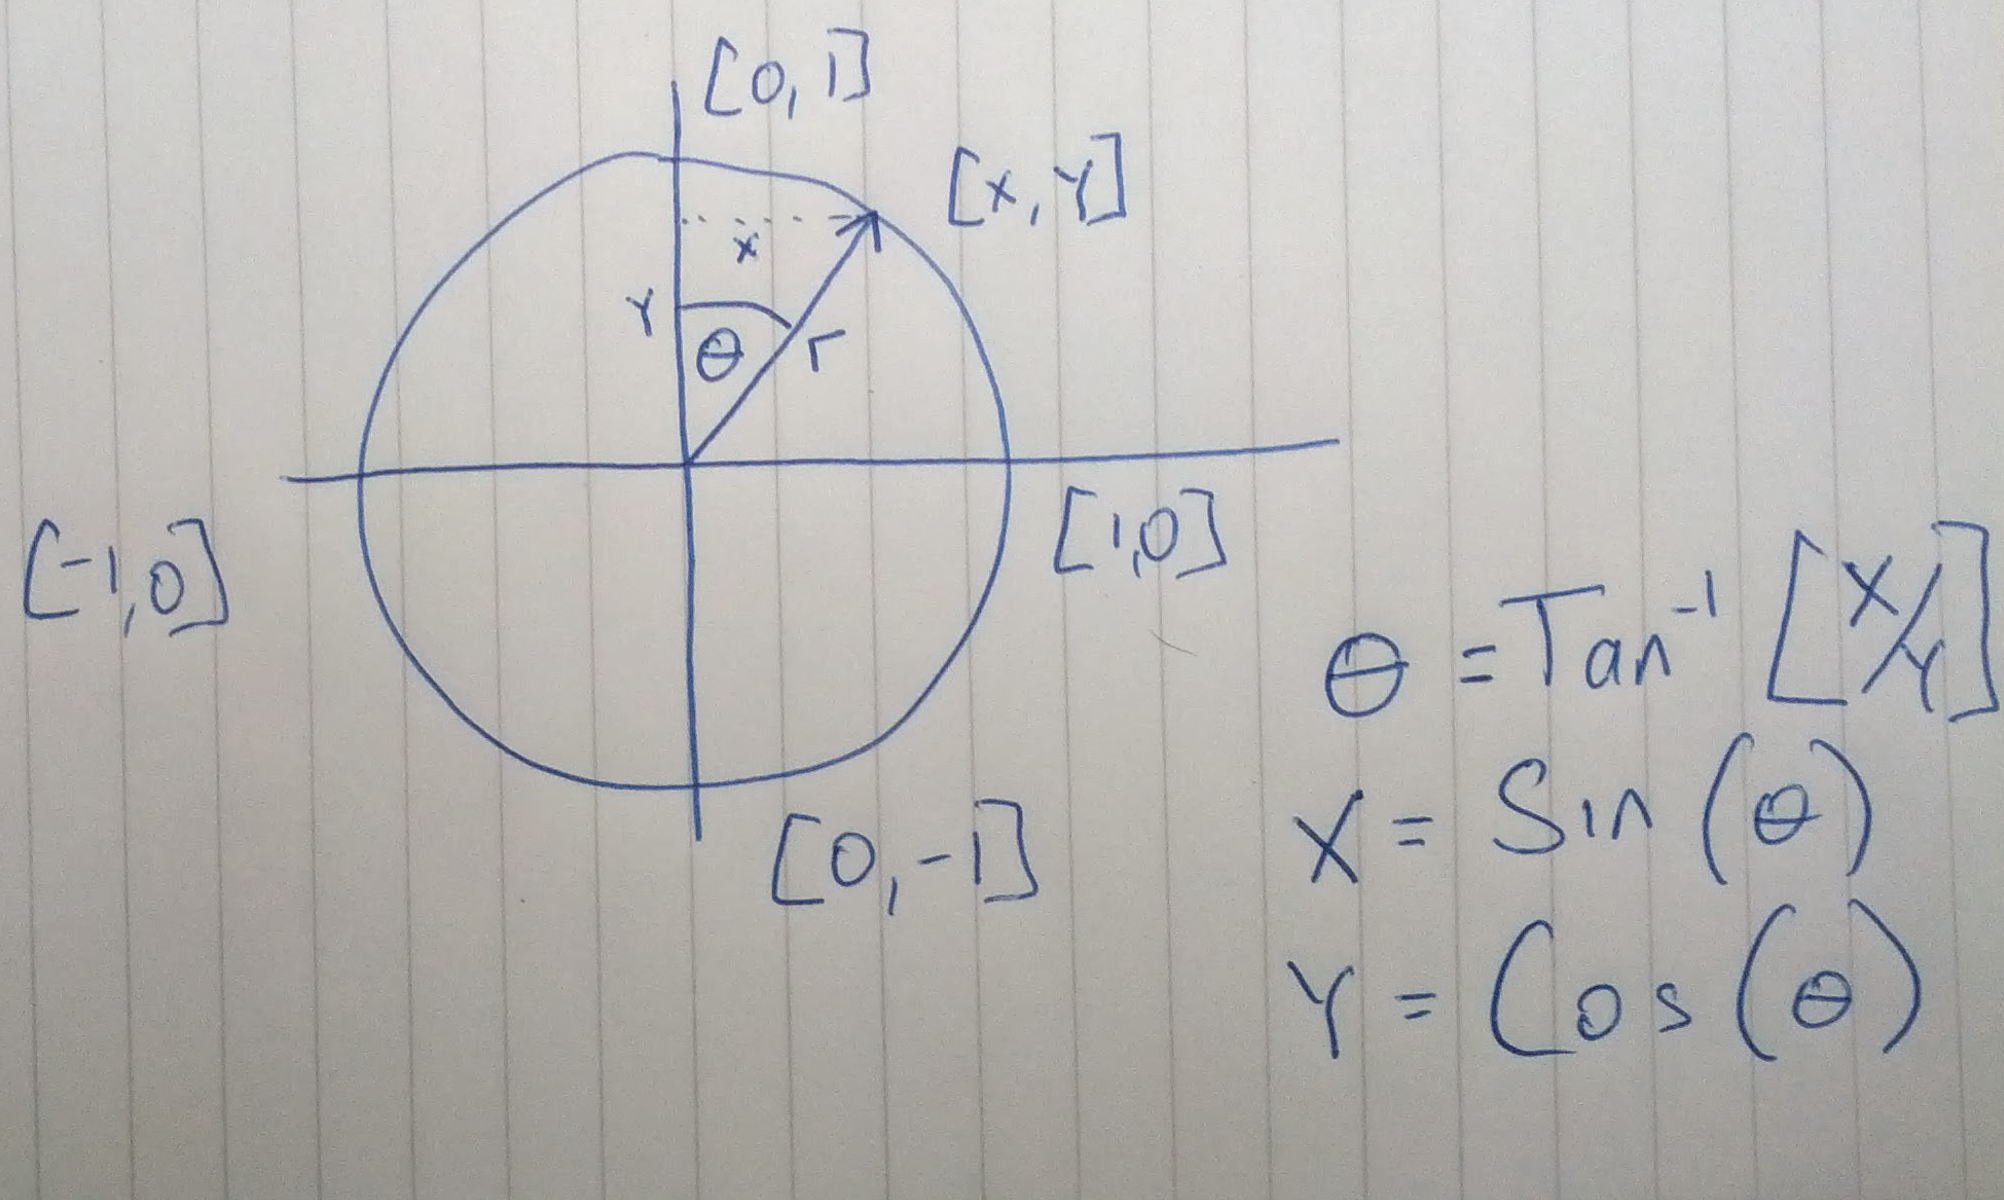 [0, 1]
[X, Y]
X
Y
θ
r
[-1, 0]
[1, 0]
[0, -1]
θ = Tan⁻¹ [X/Y]
X = Sin (θ)
Y = Cos (θ)